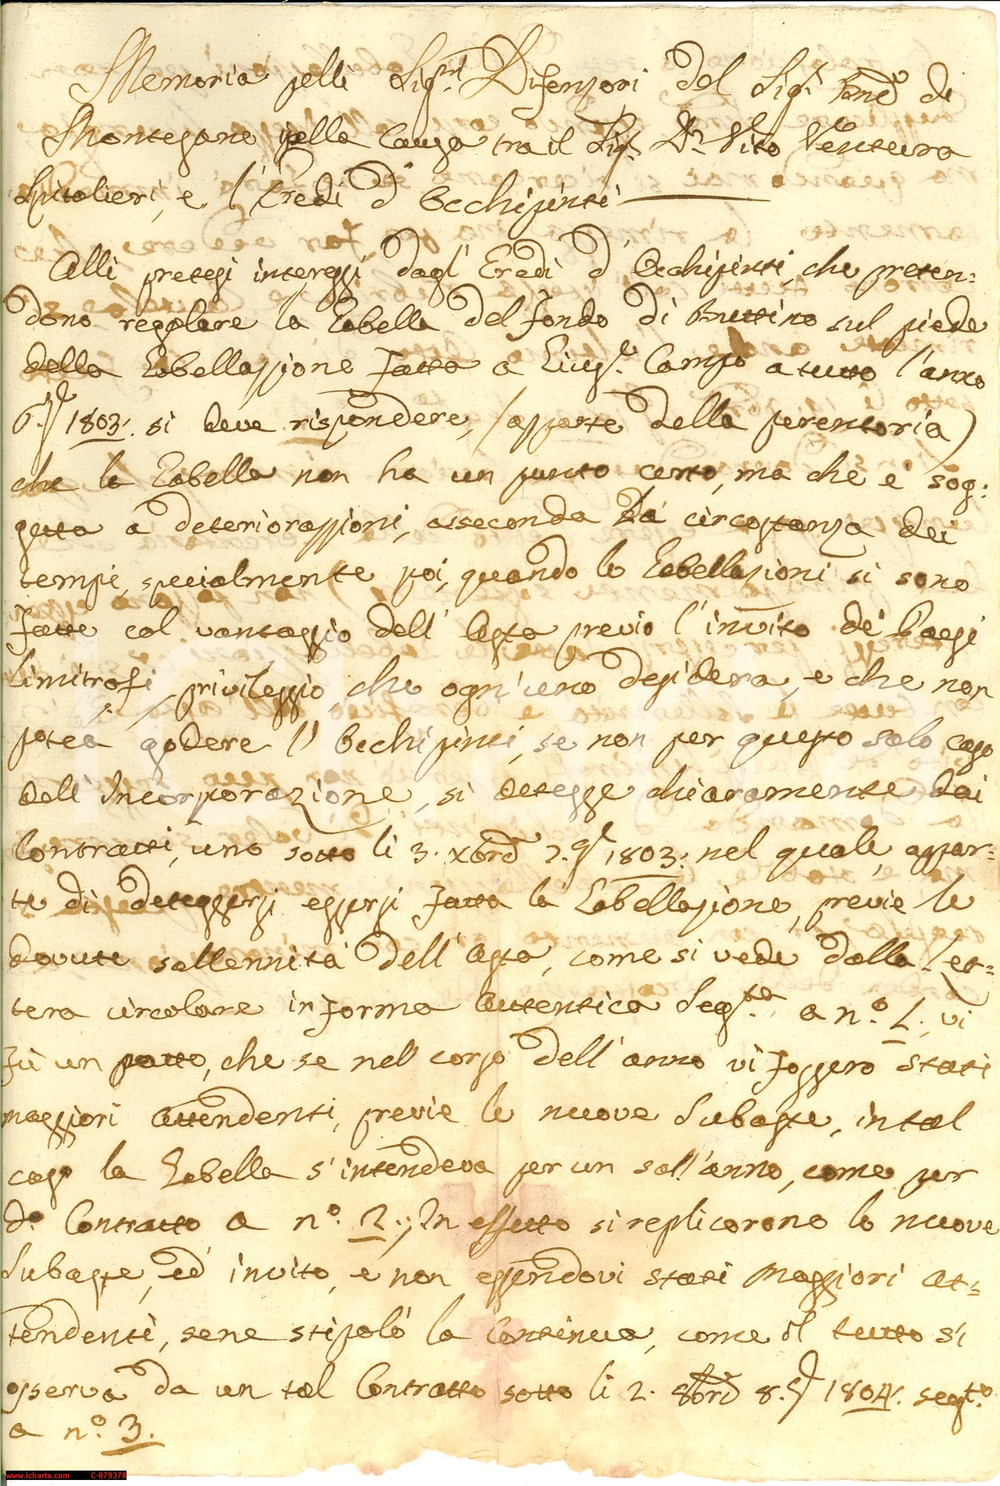 Memoria pelli Sig.ri Difensori del Sig.r Bne di
Montesano nella Causa tra il Sig. Dr. Vito Ventura
Spitalieri, e l'Eredi d'Occhipinti
Alli pretesi interessi dagl'Eredi d'Occhipinti, che preten=
dono regolare la Gabella del fondo di sul piede
della Gabellazzione fatta a Campo a tutto l'anno
1803. si deve rispondere, (apparte della perentoria)
che la Gabella non ha un punto certo, ma che è sog=
getta a deteriorazzioni, asseconda la circostanza dei
tempi, specialmente poi, quando le Gabellazioni si sono
fatte col vantaggio dell'Asta previo l'invito de' Paesi
limitrofi, privileggio che ogn'uno desidera, e che non
potea godere l'Occhipinti, se non per questo solo caso
dell'Incorporazione, si detegge chiaramente dai
Contratti, uno sotto li 3. Xbre 7.a 1803. nel quale, appar=
te di deteggersi essersi fatta la Gabellazione, previe le
dovute sollennità dell'Asta, come si vede dalla let=
tera circolare in forma autentica seg.ta a n.o 1., vi
fù un patto, che se nell corso dell'anno vi fossero stati
maggiori attendenti, previe le nuove Subaste, in tal
caso la Gabella s'intendeva per un sol'anno, come per
d.o Contratto a n.o 2.; In effetto si replicorono le nuove
Subaste, ed invito, e non essendovi stati Maggiori at=
tendenti, sene stipolò la Continua, come il tutto si
osserva da un tal Contratto sotto li 2. 8bre 8.a 1804. segt.o
a n.o 3.
www.icharta.com C-079378